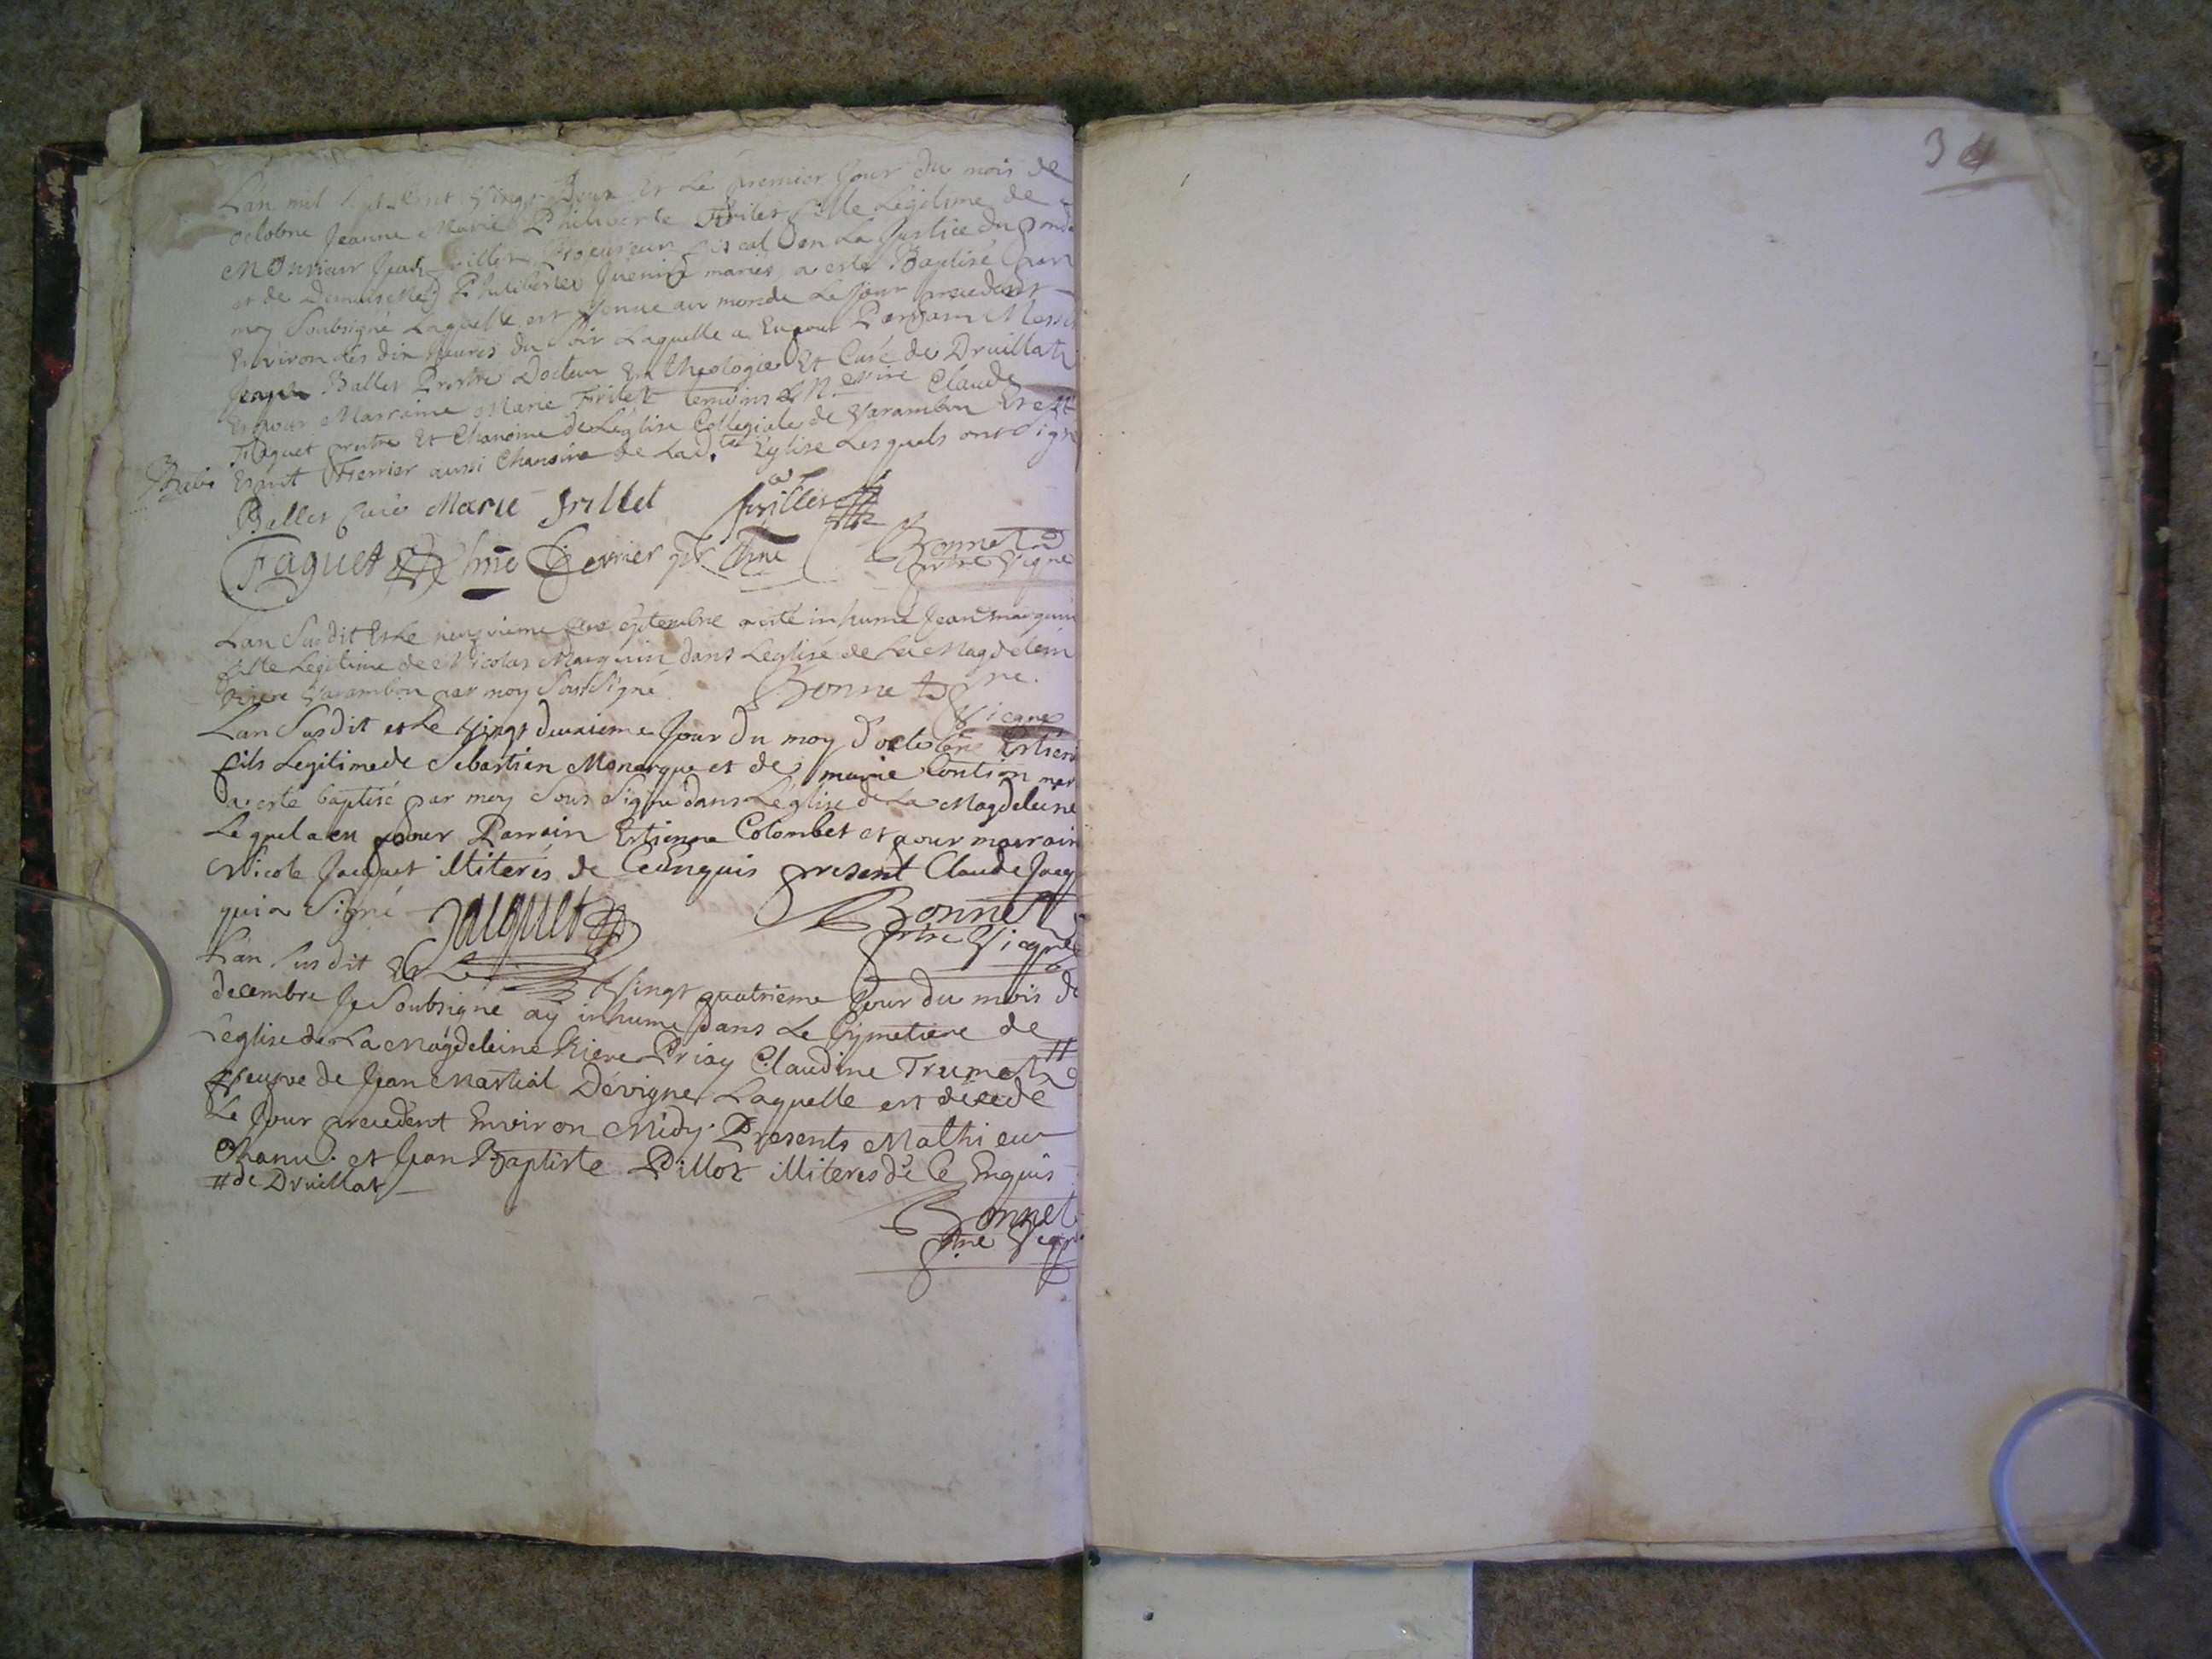 Lan mil sept Cent Vingt Deux Et Le premier Jour du mois de
octobre Jeanne Marie Philiberte Frilet fille Legitime de
Monsieur Jean frillet Procureur fiscal en La Justice du pond
et de Demoiselle Philiberte mariés a esté Baptisé par
moy Soubsigné Laquelle est venue au monde Le Jour precedent
Environ Les dix heures du Soir Laquelle a Eu pour Parrain Messi
Joseph Ballet Prestre Docteur En theologie Et Curé de Druillat
Et pour Marraine Marie Frilet temoins Claude
Faguet prestre Et Chanoine de Leglise Collegiale de Varambon Et
Esprit Ferrier aussi Chanoine de Lad.te Eglise Lesquels ont Sign
Ballet Curé Marie Frillet frillet
Faguet Chne Ferrier ptr Chne Bonnet
prtre Vicqre
Lan Susdit Et Le septembre a esté inhumé Jean marquin
fille Legitime de Nicolas Marquin dans Leglise de La Magdelein
riere Varambon par moy Soussigné Bonnet ptre
Vicqre
Lan Susdit et Le Vingt deuxieme Jour du moy d'octobre Estien
fils Legitime de Sebastien Monarque et de marie Contion mar
a esté baptisé par moy Sous Signé dans L'eglise de La Magdeleine
Lequel a eu pour Parrain Estienne Colombet et pour marrain
Nicole Jacquet illiterés de Ce Enquis present Claude Jacq
qui a Signé Jacquet Bonnet
prtre Vicqre
Lan Susdit Et Le Vingt quatrieme Jour du mois de
decembre Je Soubsigné ay inhumé dans Le Cymetiere de
L'eglise de La Magdeleine Riere Priay Claudine Trumet //
Veufve de Jean Martial Dévigne Laquelle est décedé
Le Jour precedent Environ Midy. Presents Mathieu
Chanu. et Jean Baptiste Pillot illiterés de Ce Enquis
// de Druillat
Bonnet
ptre Vicqre
3